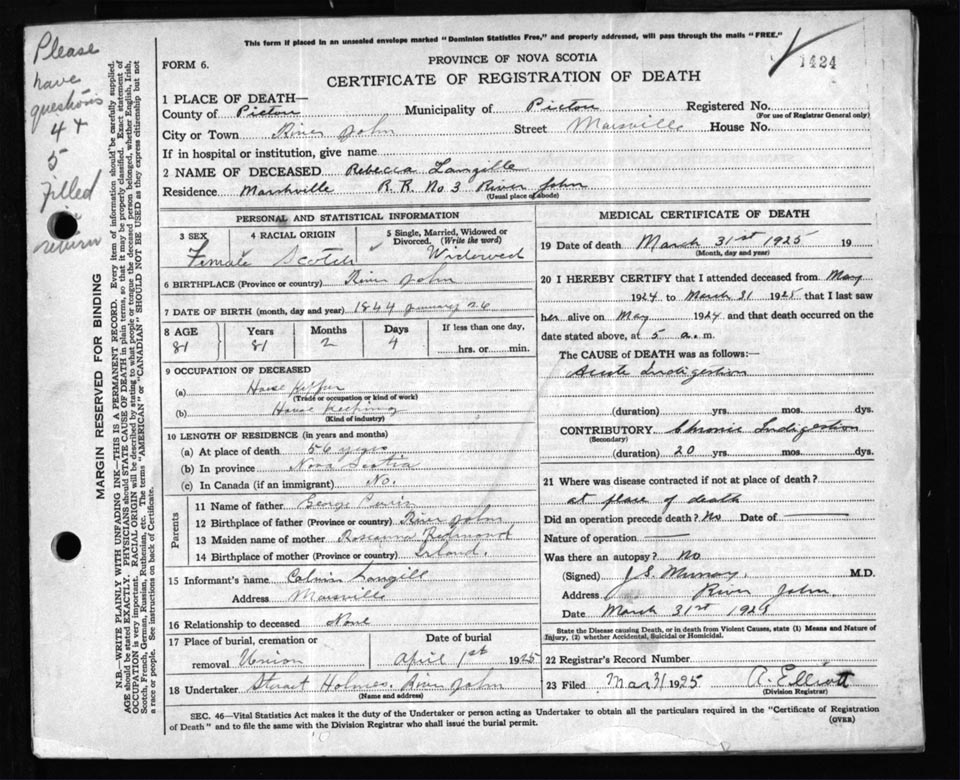 This form if placed in an unsealed envelope marked "Dominion Statistics Free," and properly addressed, will pass through the mails "FREE."
Please
have
questions
4 +
5
filled
return
FORM 6.
PROVINCE OF NOVA SCOTIA
1424
CERTIFICATE OF REGISTRATION OF DEATH
1 PLACE OF DEATH—
County of Pictou Municipality of Pictou Registered No.
(For use of Registrar General only)
City or Town River John Street Marsville House No.
If in hospital or institution, give name
2 NAME OF DECEASED Rebecca Langille
Residence Marshville R. R. No 3 River John
(Usual place of abode)
PERSONAL AND STATISTICAL INFORMATION
3 SEX 4 RACIAL ORIGIN 5 Single, Married, Widowed or Divorced. (Write the word)
Female Scotch Widowed
6 BIRTHPLACE (Province or country) River John
7 DATE OF BIRTH (month, day and year) 1844 January 26
8 AGE Years Months Days If less than one day,
81 81 2 4 hrs. or min.
9 OCCUPATION OF DECEASED
(a) House Keeper
(Trade or occupation or kind of work)
(b) House Keeping
(Kind of industry)
10 LENGTH OF RESIDENCE (in years and months)
(a) At place of death 56 years
(b) In province Nova Scotia
(c) In Canada (if an immigrant) No.
Parents
11 Name of father George
12 Birthplace of father (Province or country) River John
13 Maiden name of mother Roseanna Redmond
14 Birthplace of mother (Province or country) Irland.
15 Informant's name Calvin Langill
Address Marsville
16 Relationship to deceased None
17 Place of burial, cremation or removal Union
Date of burial April 1st 1925
18 Undertaker Stuart Holmes, River John
(Name and address)
MEDICAL CERTIFICATE OF DEATH
19 Date of death March 31st 1925 19
(Month, day and year)
20 I HEREBY CERTIFY that I attended deceased from May
1924 to March 31 1925 that I last saw
her alive on May 1924 and that death occurred on the
date stated above, at 5 a.m.
The CAUSE of DEATH was as follows:
Acute Indigestion
(duration) yrs. mos. dys.
CONTRIBUTORY Chronic Indigestion
(Secondary)
(duration) 20 yrs. mos. dys.
21 Where was disease contracted if not at place of death?
at place of death
Did an operation precede death? No Date of
Nature of operation
Was there an autopsy? No
(Signed) J.S. Murray. M.D.
Address River John
Date March 31st 1925
State the Disease causing Death, or in death from Violent Causes, state (1) Means and Nature of Injury, (2) whether Accidental, Suicidal or Homicidal.
22 Registrar's Record Number
23 Filed Mar 31 1925 A. Elliott
(Division Registrar)
SEC. 46—Vital Statistics Act makes it the duty of the Undertaker or person acting as Undertaker to obtain all the particulars required in the "Certificate of Registration
of Death" and to file the same with the Division Registrar who shall issue the burial permit.
(OVER)
MARGIN RESERVED FOR BINDING
N.B.—WRITE PLAINLY WITH UNFADING INK—THIS IS A PERMANENT RECORD. Every item of information should be carefully supplied.
AGE should be stated EXACTLY. PHYSICIANS should STATE CAUSE OF DEATH in plain terms, so that it may be properly classified. Exact statement of
OCCUPATION is very important. RACIAL ORIGIN will be described by stating to what people or tongue the deceased person belonged, whether English, Irish,
Scotch, French, German, Russian, Ruthenian, etc. The terms "AMERICAN" or "CANADIAN" SHOULD NOT BE USED as they express citizenship but not
a race or people. See instructions on back of Certificate.